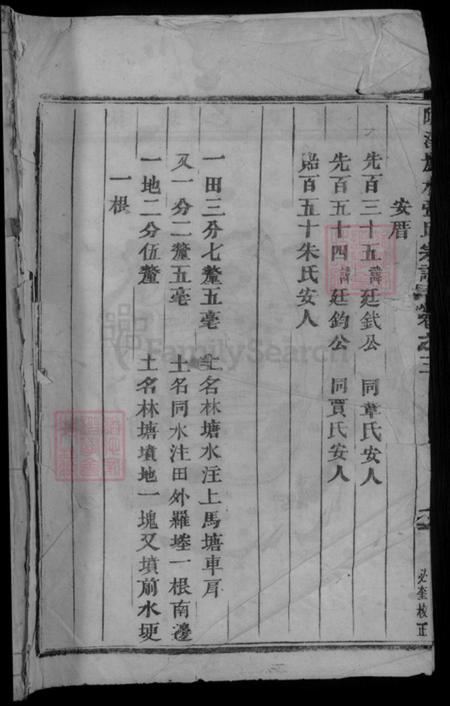 張氏宗譜 卷之三
必奎校正
安厝
先百三十五諱廷鉽公 同章氏安人
先百五十四諱廷鈞公 同賈氏安人
百五十朱氏安人
一田三分七釐五毫 土名林塘水注上馬塘車肩
又一分二釐五毫 土名同水注田外羅墶一根南邊
一地二分伍釐 土名林塘墳地一塊又墳前水埂
一根
FamilySearch